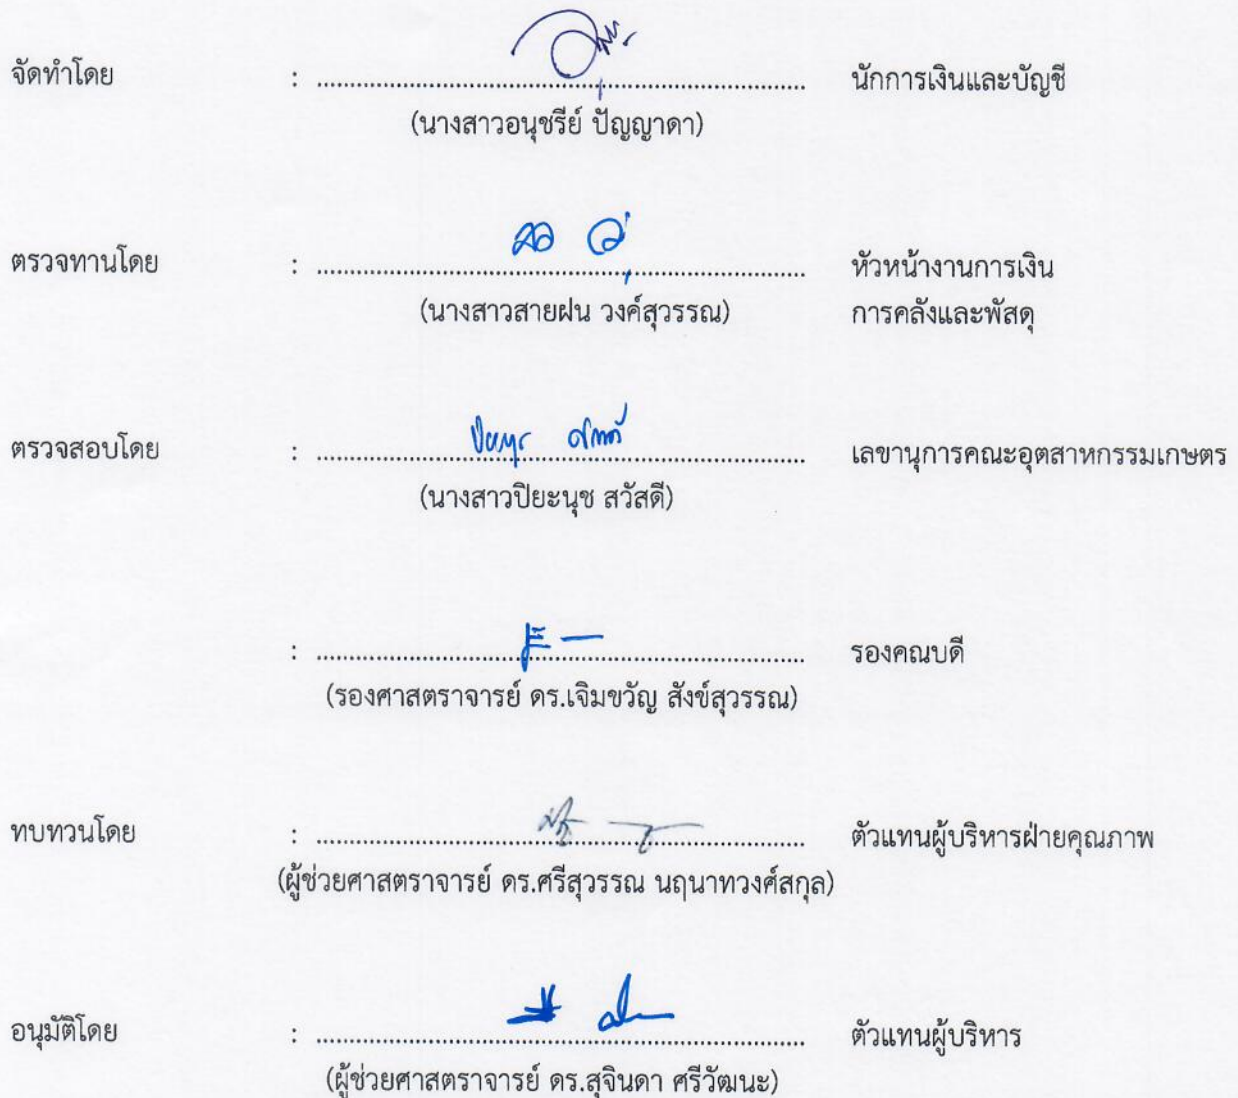 จัดทำโดย : ........................ นักการเงินและบัญชี
(นางสาวอนุชรีย์ ปัญญาดา)
ตรวจทานโดย : ........................ หัวหน้างานการเงิน
(นางสาวสายฝน วงค์สุวรรณ) การคลังและพัสดุ
ตรวจสอบโดย : ........................ เลขานุการคณะอุตสาหกรรมเกษตร
(นางสาวปิยะนุช สวัสดี)
: ........................ รองคณบดี
(รองศาสตราจารย์ ดร.เจิมขวัญ สังข์สุวรรณ)
ทบทวนโดย : ........................ ตัวแทนผู้บริหารฝ่ายคุณภาพ
(ผู้ช่วยศาสตราจารย์ ดร.ศรีสุวรรณ นฤนาทวงศ์สกุล)
อนุมัติโดย : ........................ ตัวแทนผู้บริหาร
(ผู้ช่วยศาสตราจารย์ ดร.สุจินดา ศรีวัฒนะ)